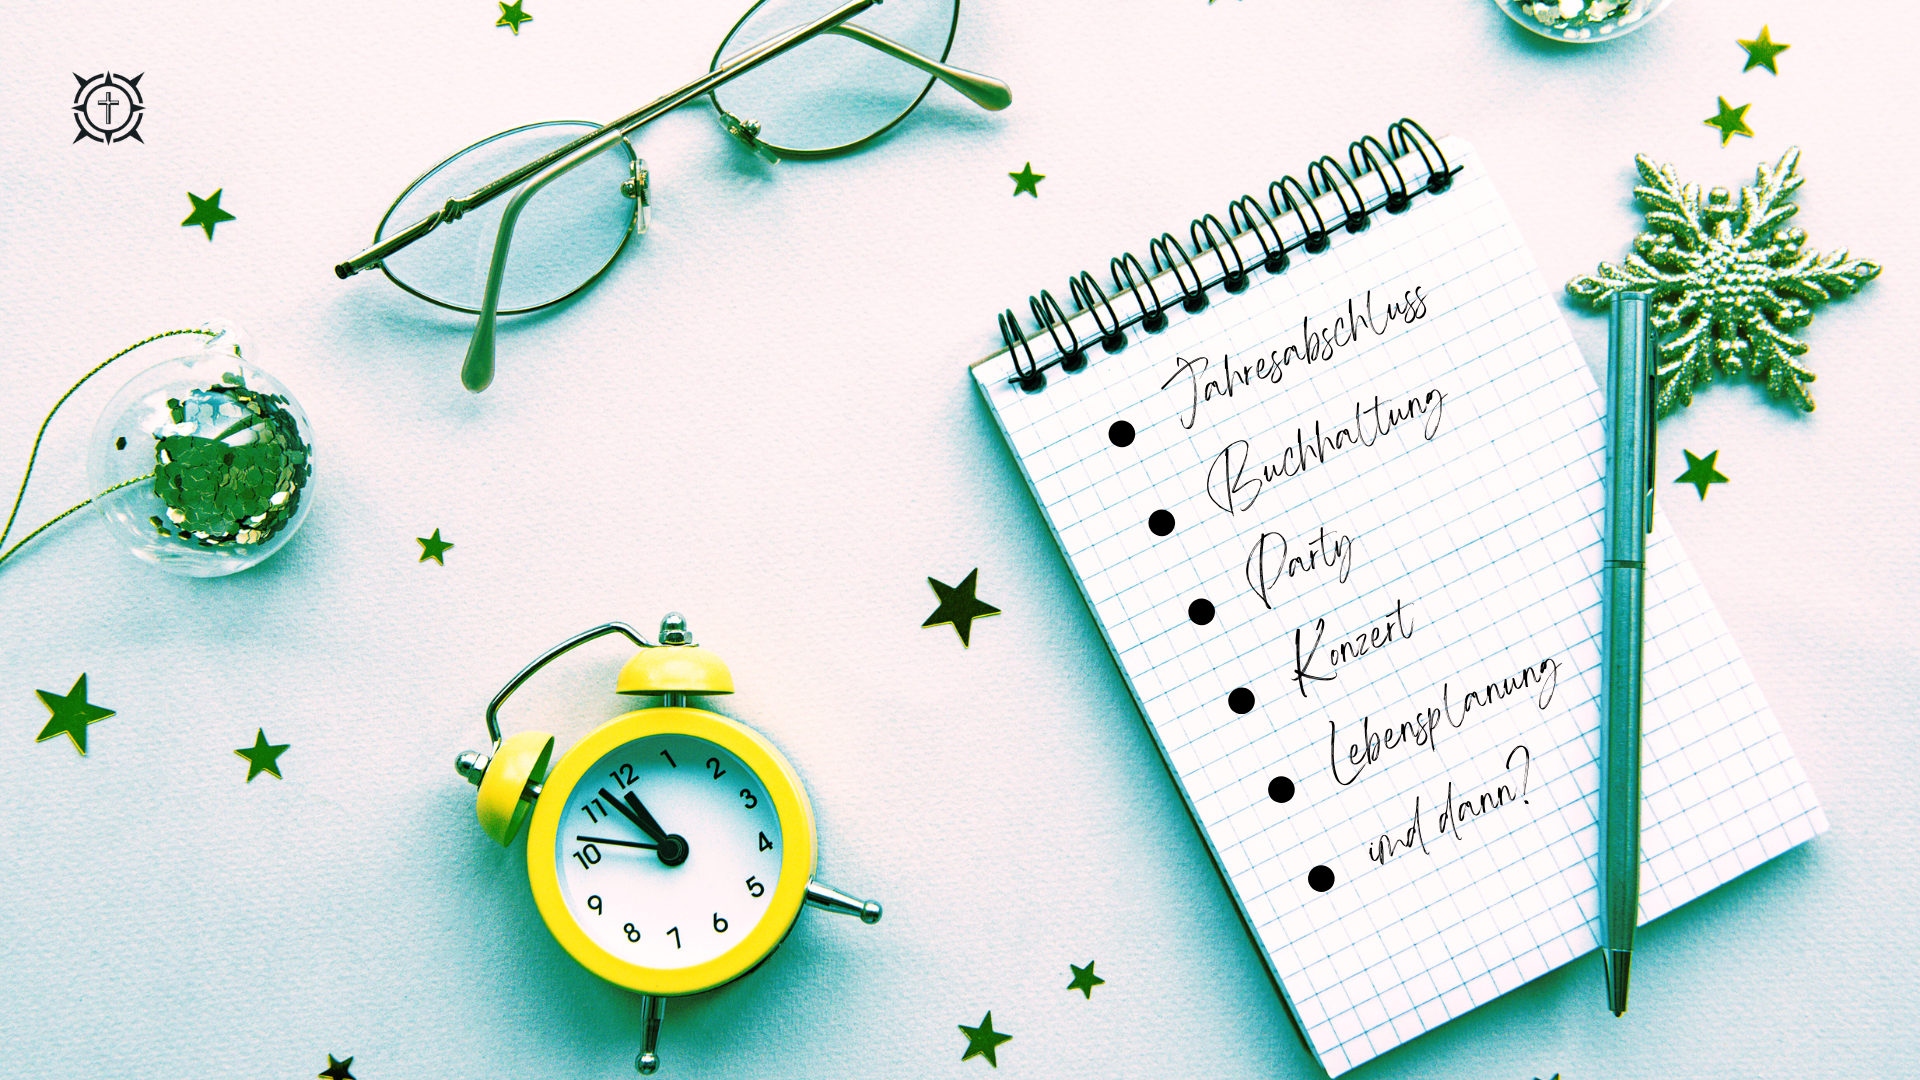 Jahresabschluss
Buchhaltung
Party
Konzert
Lebensplanung
und dann?
12
1
2
3
4
5
6
7
8
9
10
11